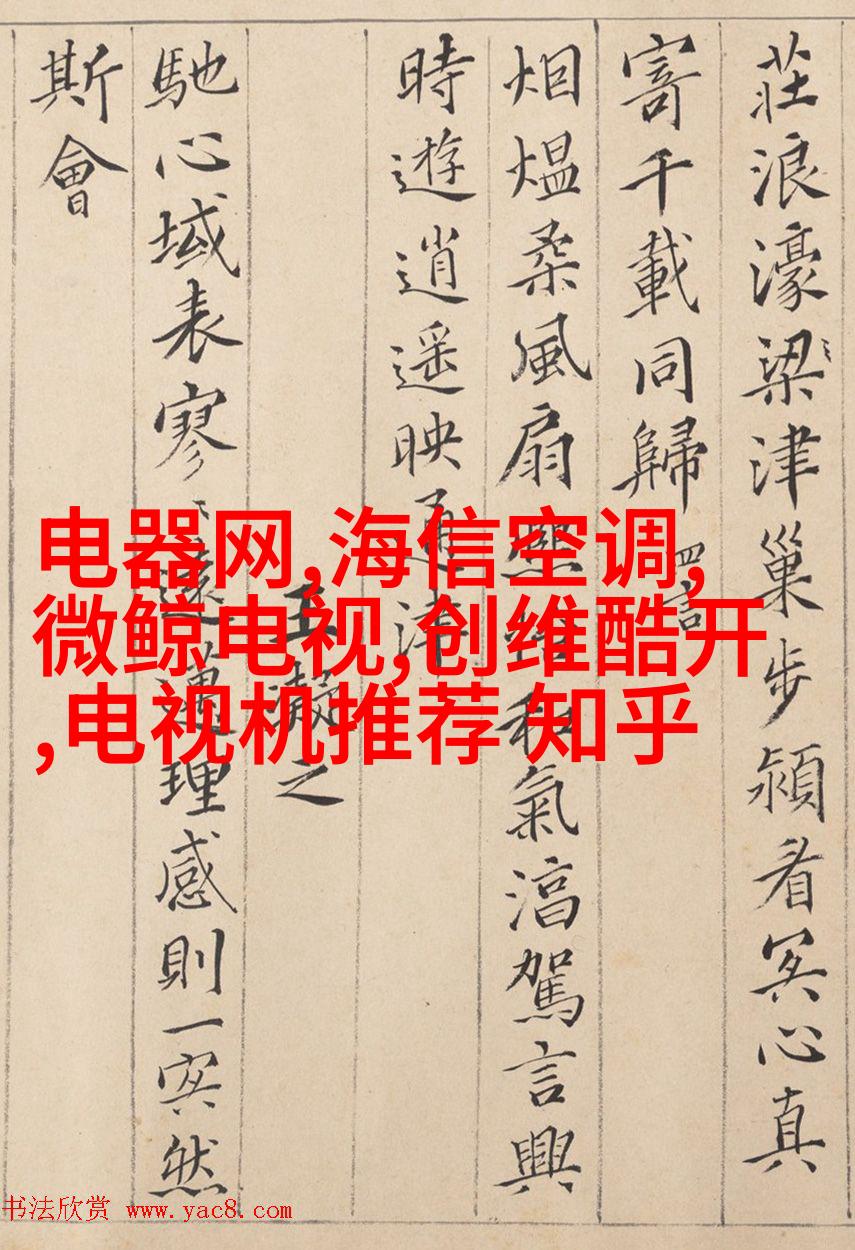 莊浪濠梁津巢步潁看冥心真
寄千載同歸 四言
烟熅柔風扇熙和氣淳駕言興
時遊逍遥映通津
王凝之
馳心域表寥遠邁理感則一冥然
斯會
电器网,海信空调,
微鲸电视,创维酷开
,电视机推荐 知乎
书法欣赏 www.yac8.com